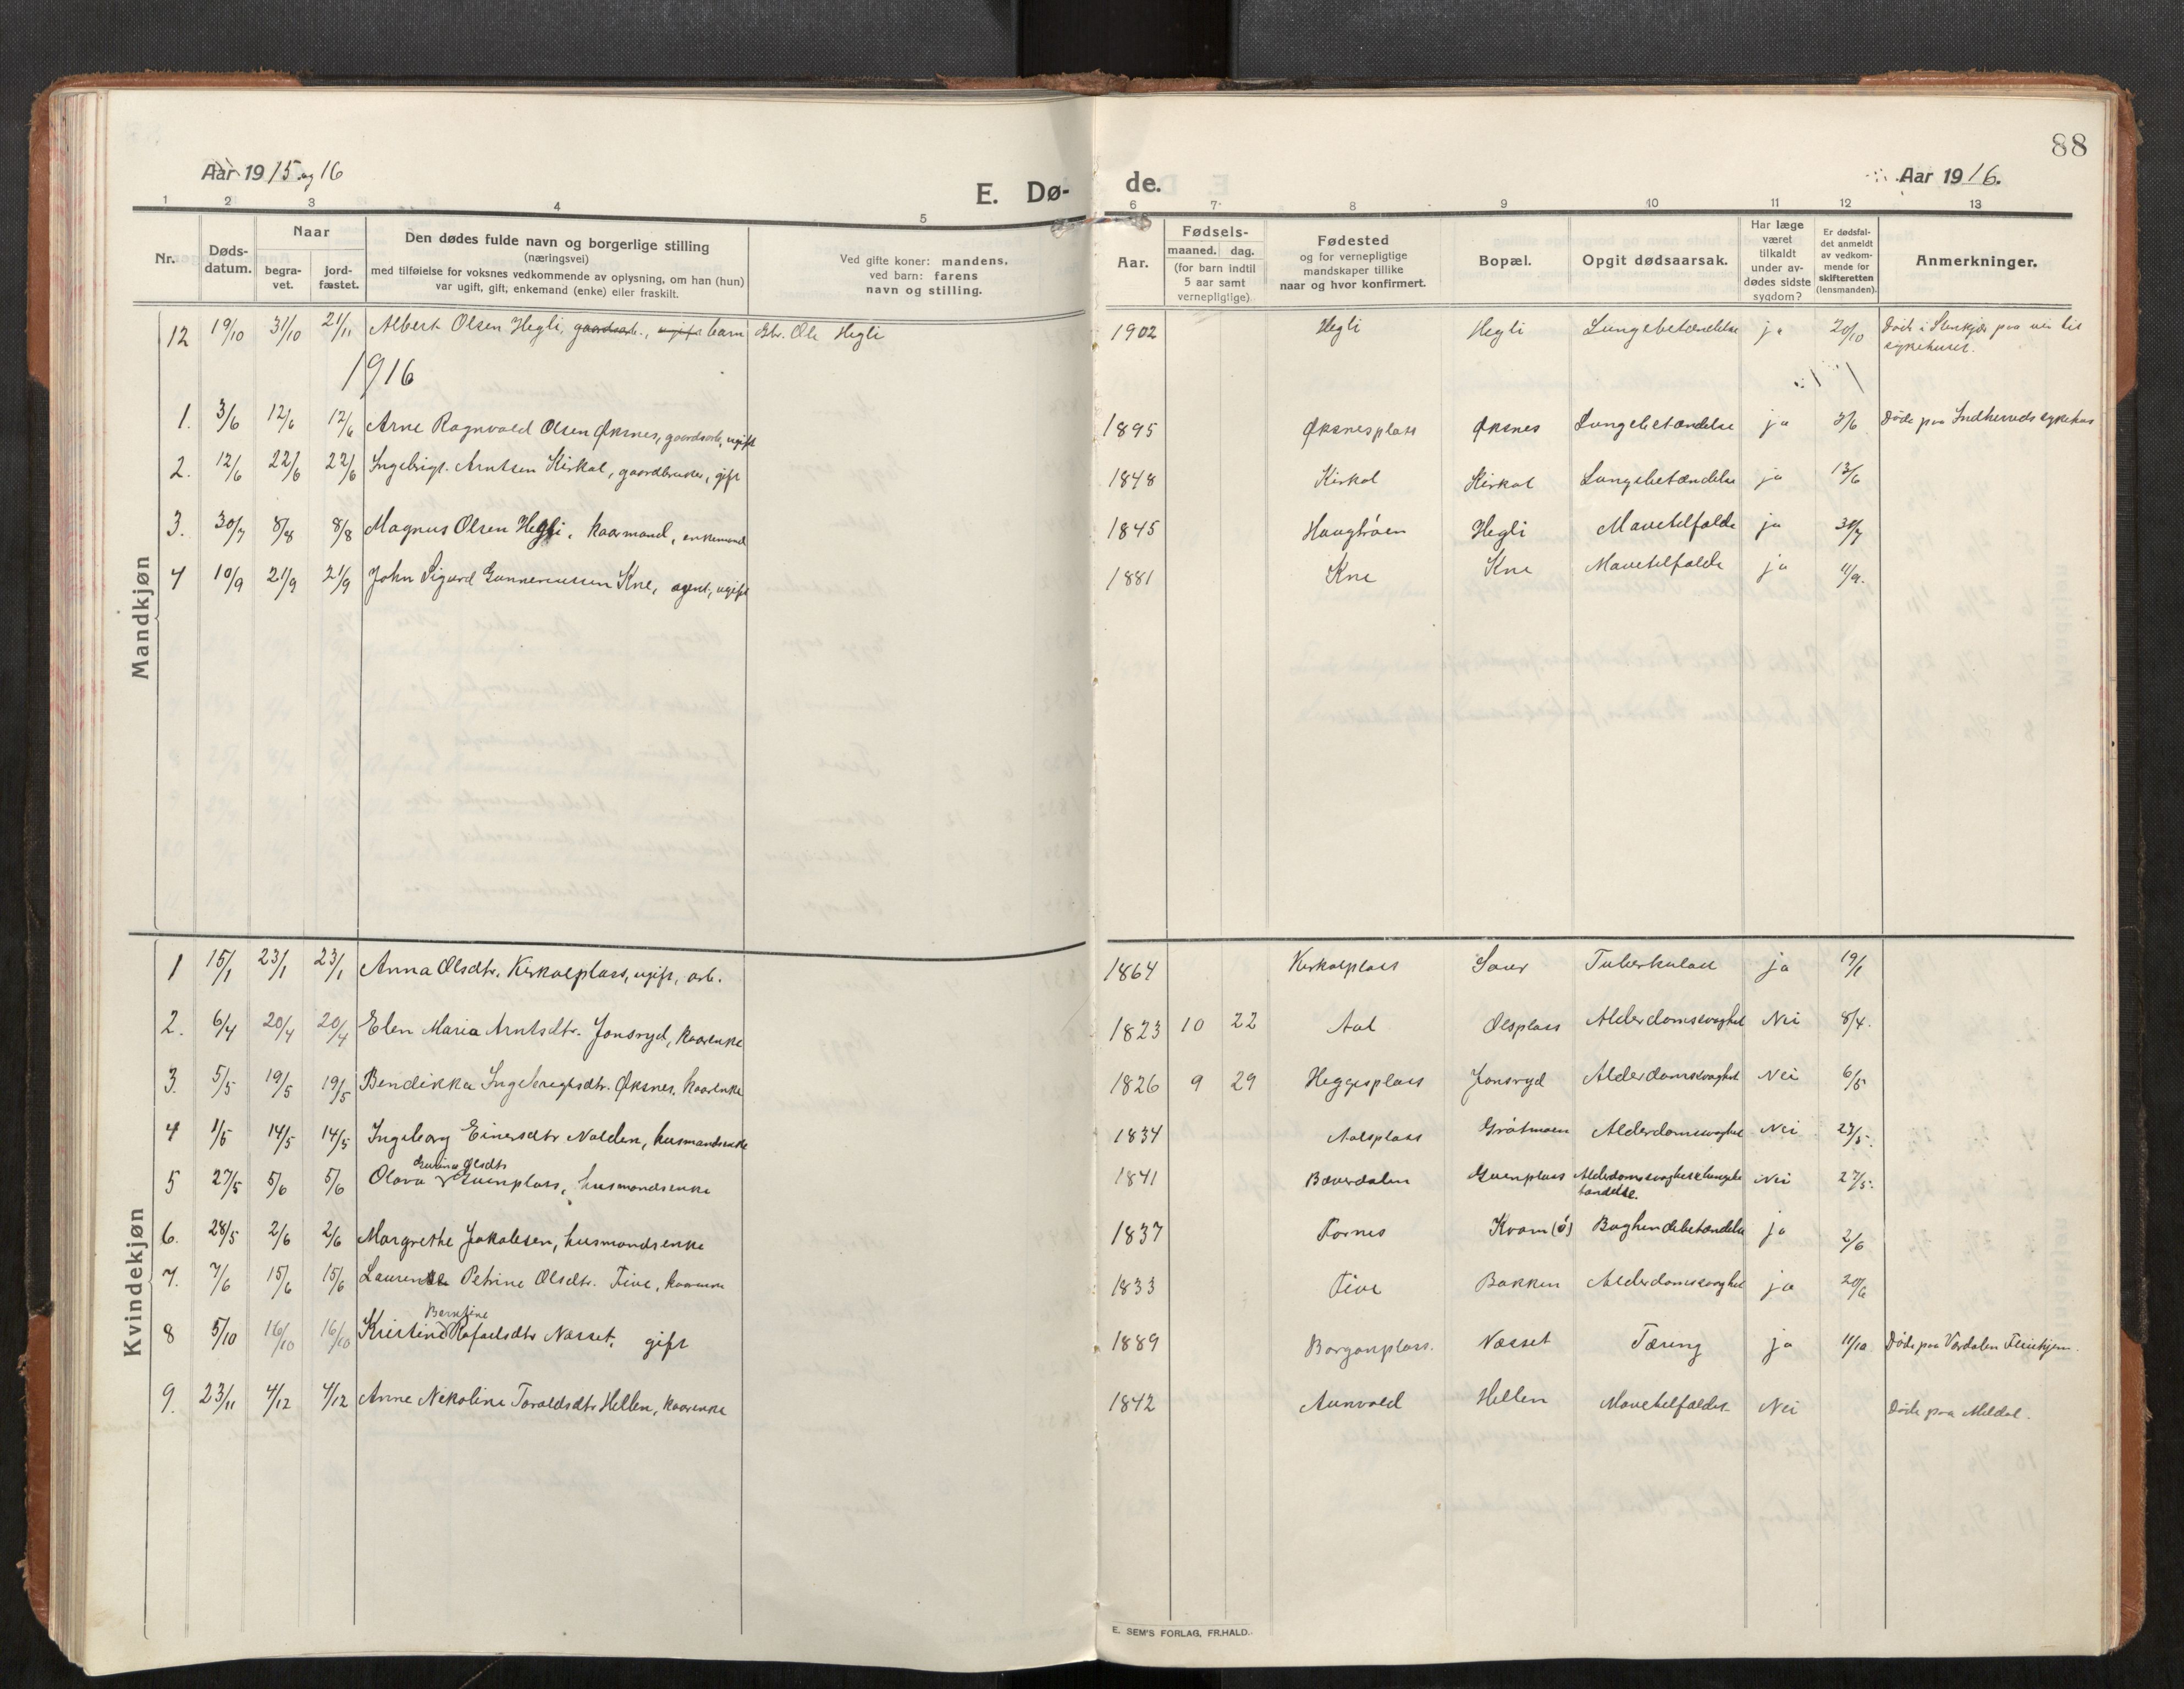 88
Aar 1915 og 16
E. Dø-
de.
Aar 1916.
1 2 3 4 5 6 7 8 9 10 11 12 13
Nr.
Døds-
datum.
Naar
begra-
vet.
jord-
fæstet.
Den dødes fulde navn og borgerlige stilling
(næringsvei)
med tilføielse for voksnes vedkommende av oplysning, om han (hun)
var ugift, gift, enkemand (enke) eller fraskilt.
Ved gifte koner: mandens,
ved barn: farens
navn og stilling.
Aar.
Fødsels-
maaned. dag.
(for barn indtil
5 aar samt
vernepligtige)
Fødested
og for vernepligtige
mandskaper tillike
naar og hvor konfirmert.
Bopæl.
Opgit dødsaarsak.
Har læge
været
tilkaldt
under av-
dødes sidste
sygdom?
Er dødsfal-
det anmeldt
av vedkom-
mende for
skifteretten
(lensmanden).
Anmerkninger.
Mandkjøn
12 19/10 31/10 21/11 Albert Olsen Hegli, gaardsarb., ugift barn Gbr. Ole Hegli 1902 Hegli Hegli Lungebetændelse ja 20/10 Døde i Stenkjær paa vei til
sykehuset.
1916
1. 3/6 12/6 12/6 Arne Ragnvald Olsen Øksnes, gaardsarb., ugift 1895 Øksnesplass Øksnes Lungebetændelse ja 3/6 Døde paa Indherreds sykehus
2. 12/6 22/6 22/6 Ingebrigt Arntsen Kirkol, gaardbruker, gift 1848 Kirkol Kirkol Lungebetændelse ja 13/6
3. 30/7 8/8 8/8 Magnus Olsen Hegli, kaarmand, enkemand 1845 Haugtrøen Hegli Mavetilfælde ja 31/7
4 10/9 21/9 21/9 John Sigurd Gunneriussen Kne, agent, ugift 1881 Kne Kne Mavetilfælde ja 11/9.
Kvindekjøn
1 15/1 23/1 23/1 Anna Olsdtr. Kirkolplass, ugift, arb. 1864 Kirkolplass Saur Tuberkulose ja 19/1
2. 6/4 20/4 20/4 Elen Maria Arntsdtr. Jonsryd, kaarenke 1823 10 22 Aal Olsplass Alderdomssvaghet Nei 8/4.
3. 5/5 19/5 19/5 Bendikka Ingebrigtsdtr. Øksnes, kaarenke 1826 9 29 Heggesplass Jonsryd Alderdomssvaghet Nei 6/5
4 1/5 14/5 14/5 Ingeborg Einersdtr Nolden, husmandsenke 1834 Aalsplass Gråtmoen Alderdomssvaghet Nei 23/5.
Gurine Olsdtr
5 27/5 5/6 5/6 Olava Guenplass, husmandsenke 1841 Bæverdalen Guenplass Alderdomssvaghet & lungebe
tændelse. Nei 27/5.
6. 28/5 2/6 2/6 Margrethe Jakobsen, husmandsenke 1837 Fornes Kvam (ö) Bughindebetændelse ja 2/6
7. 7/6 15/6 15/6 Laurentse Petrine Olsdtr. Five, kaarenke 1833 Five Bakken Alderdomssvaghet ja 20/6
Berntine
8 5/10 16/10 16/10 Kristine Rafaelsdtr Næsset, gift 1889 Borganplass. Næsset Tæring ja 11/10 Døde paa Værdalen Pleiehjem.
9. 23/11 4/12 4/12 Anne Nekoline Toraldsdtr Hellen, kaarenke 1842 Aunvold Hellen Mavetilfælde Nei Døde paa Mildal.
E. SEM'S FORLAG, FR.HALD.